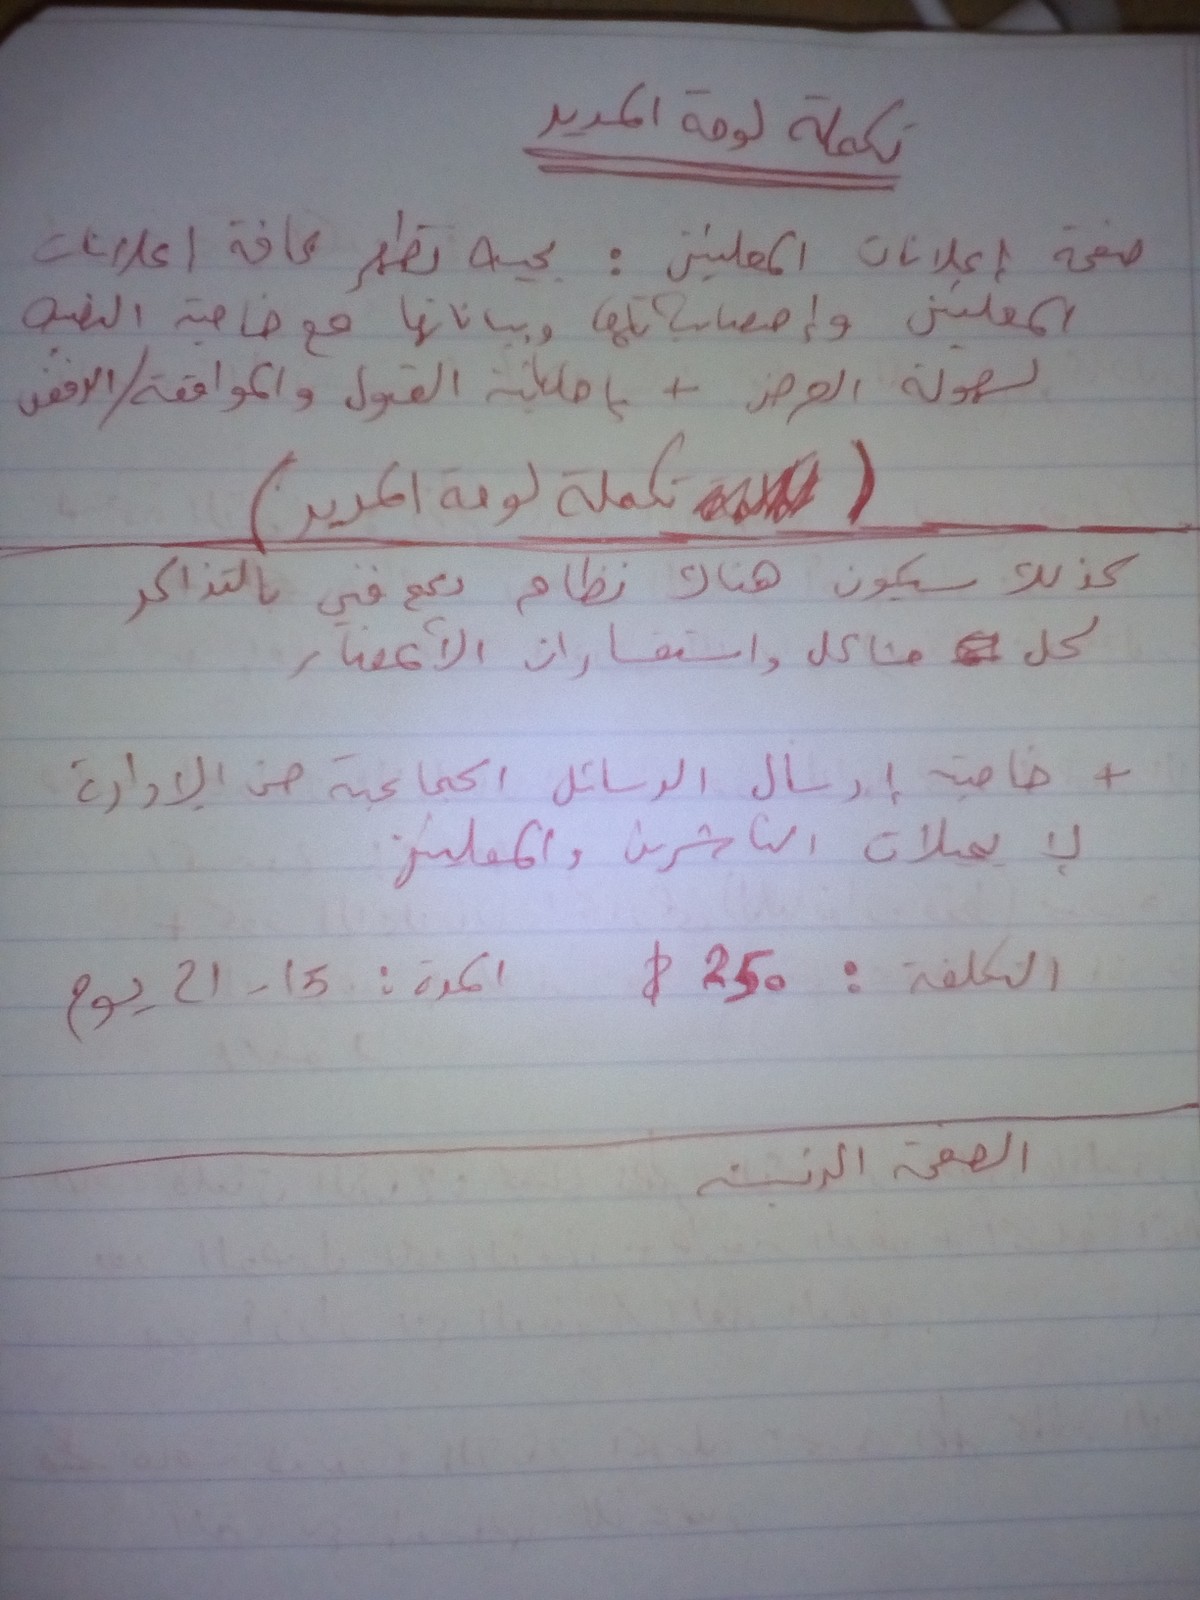 تكملة لوحة المدير
صفحة إعلانات المعلنين : بحيث تظهر كافة اعلانات
المعلنين وإحصائياتها وبياناتها مع خاصية
لسهولة العرض + إمكانية القبول والموافقة/الرفض
( تكملة لوحة المدير )
كذلك سيكون هناك نظام دعم فني بالتذاكر
لحل مشاكل واستفسارات الأعضاء
+ خاصية إرسال الرسائل الجماعية من الإدارة
لإيميلات الناشرين والمعلنين
التكلفة : 250 $ المدة : 15 - 21 يوم
الصفحة الرئيسية